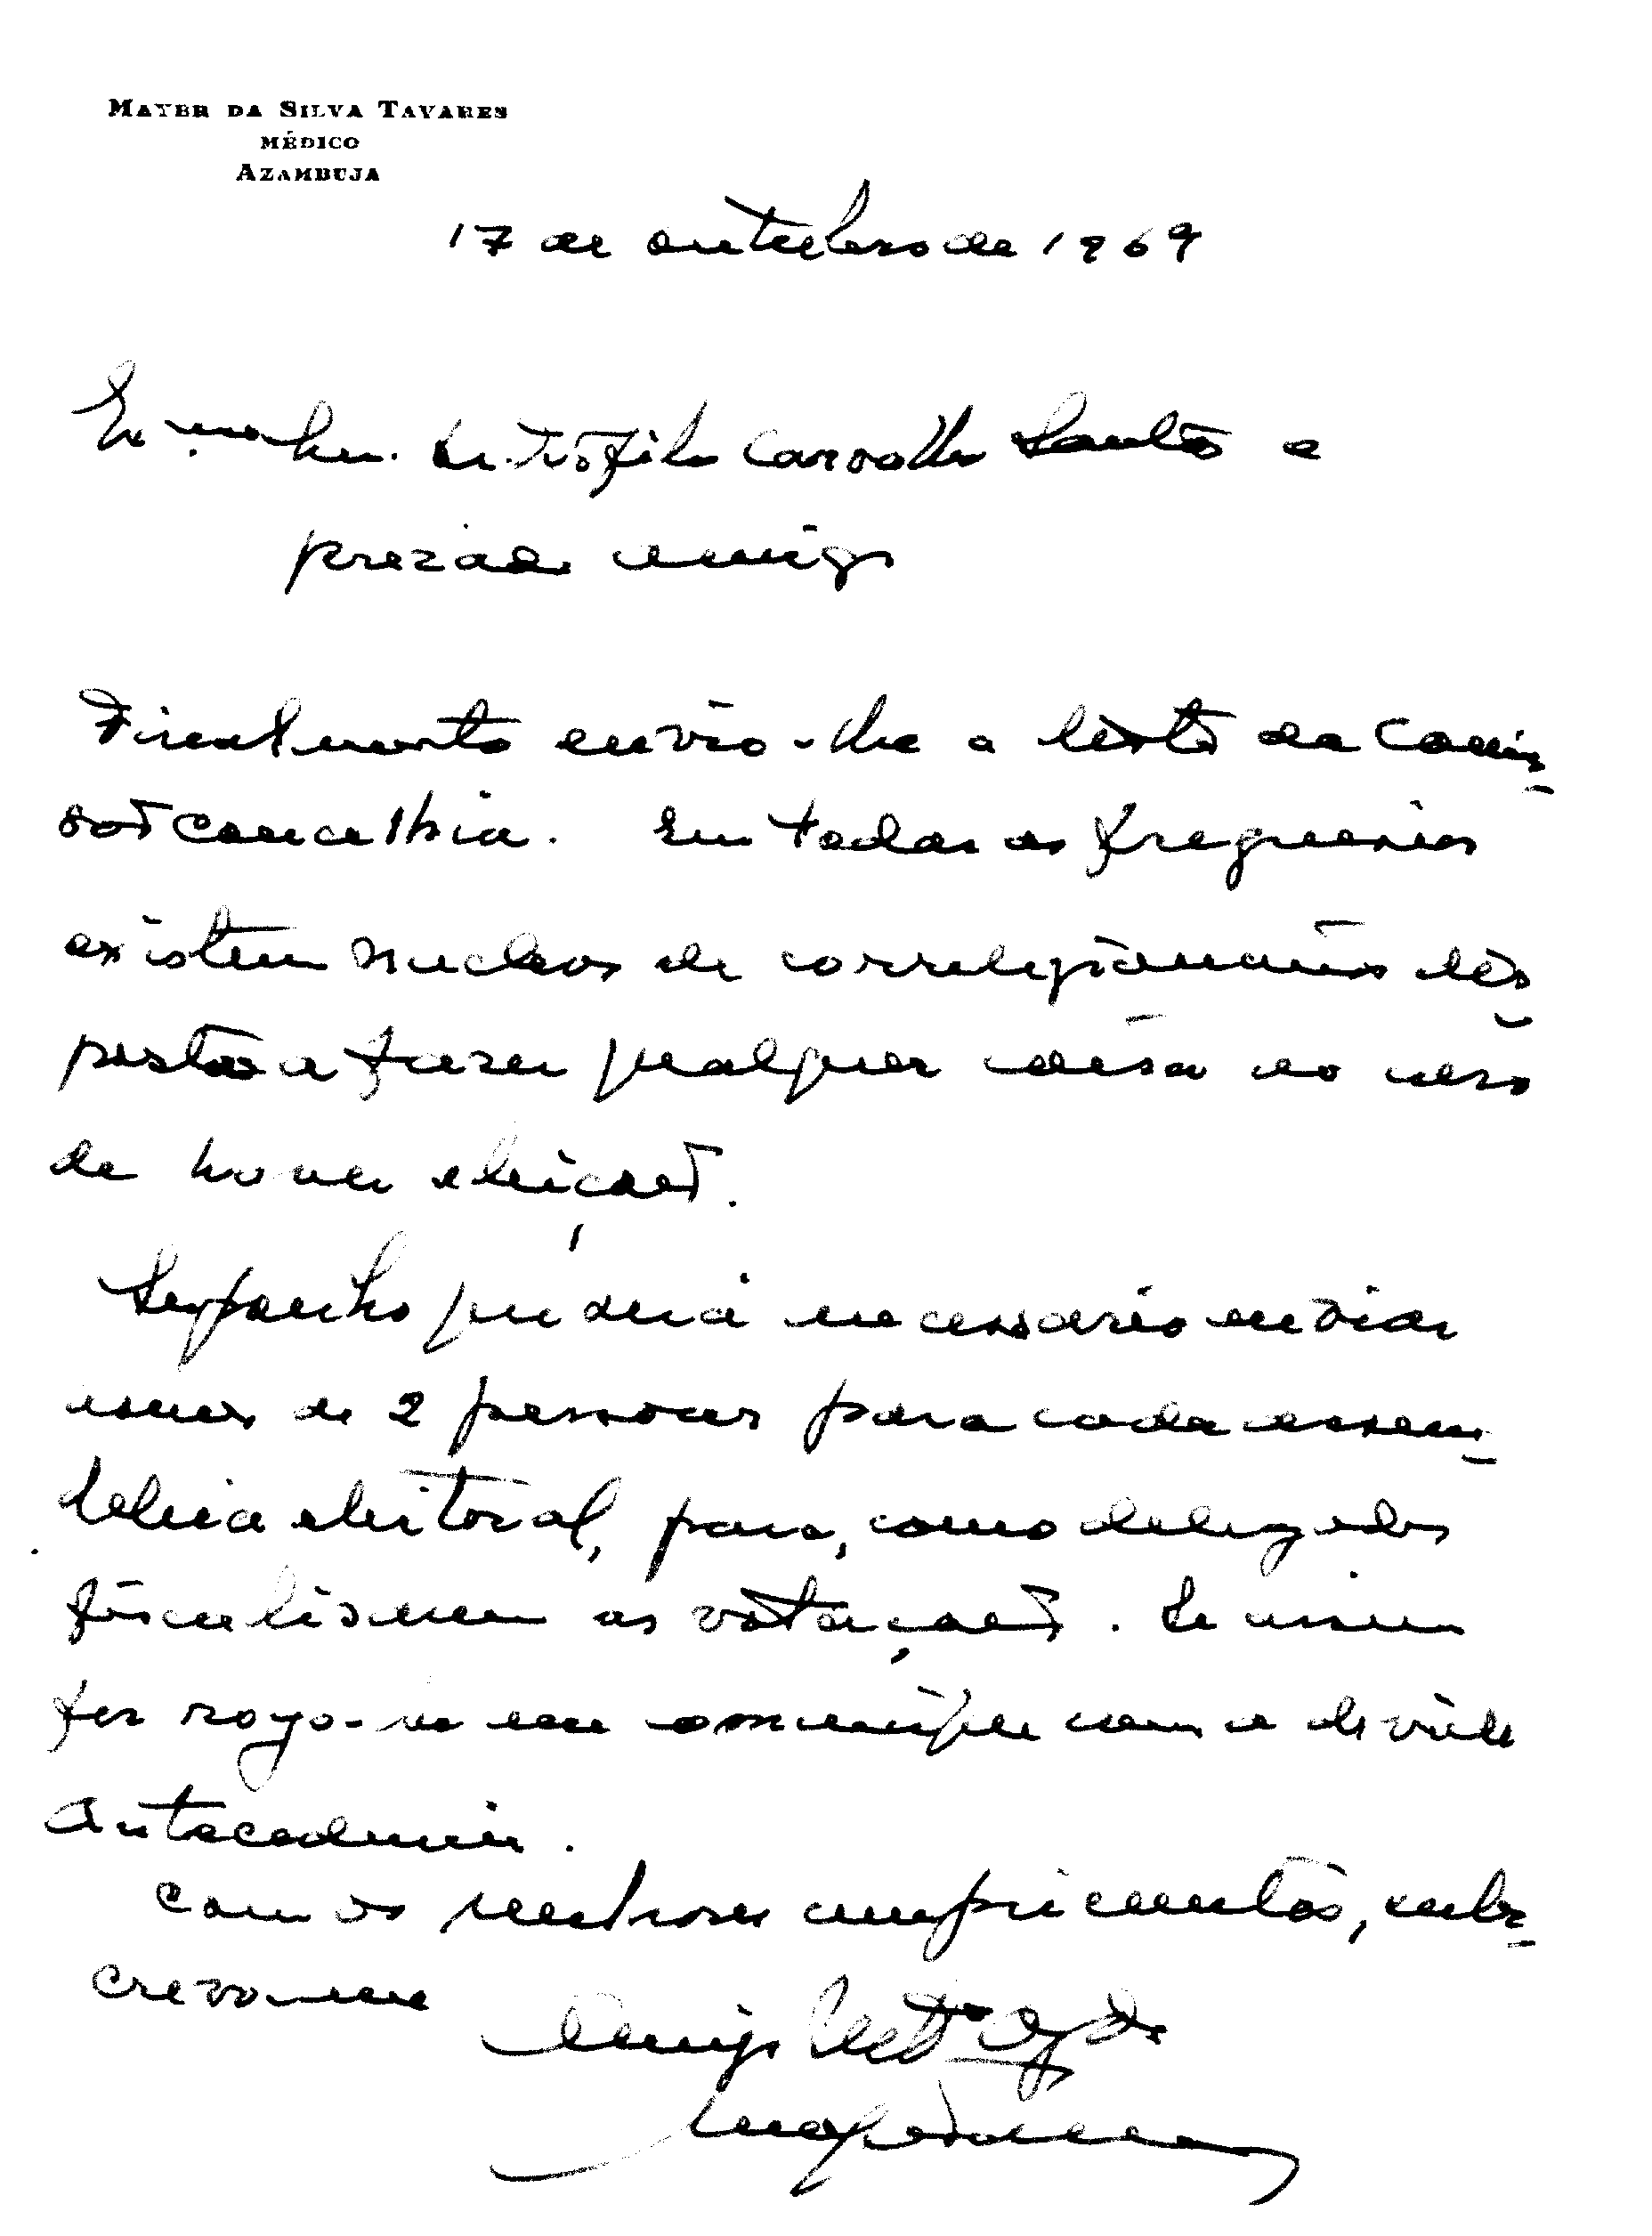 MAYER DA SILVA TAVARES
MÉDICO
AZAMBUJA
17 de outubro de 1969
Exmo Sen. Dr. Teófilo Carvalho Santos e
prezado amigo
Finalmente envio-lhe a lista da Comis-
são concelhia. Em todas as freguesias
existem nucleos de correlegionários dis-
postos a fazer qualquer coisa no caso
de haver eleições.
Suponho que será necessário enviar
mais de 2 pessoas para cada assem-
bleia eleitoral, para, como delegados
fiscalisarem as votações. Se assim
for rogo-lhe me comunique com a devida
antecedencia.
Com os melhores cumprimentos, subs-
crevo-me
Amigo Mtº Obgdo